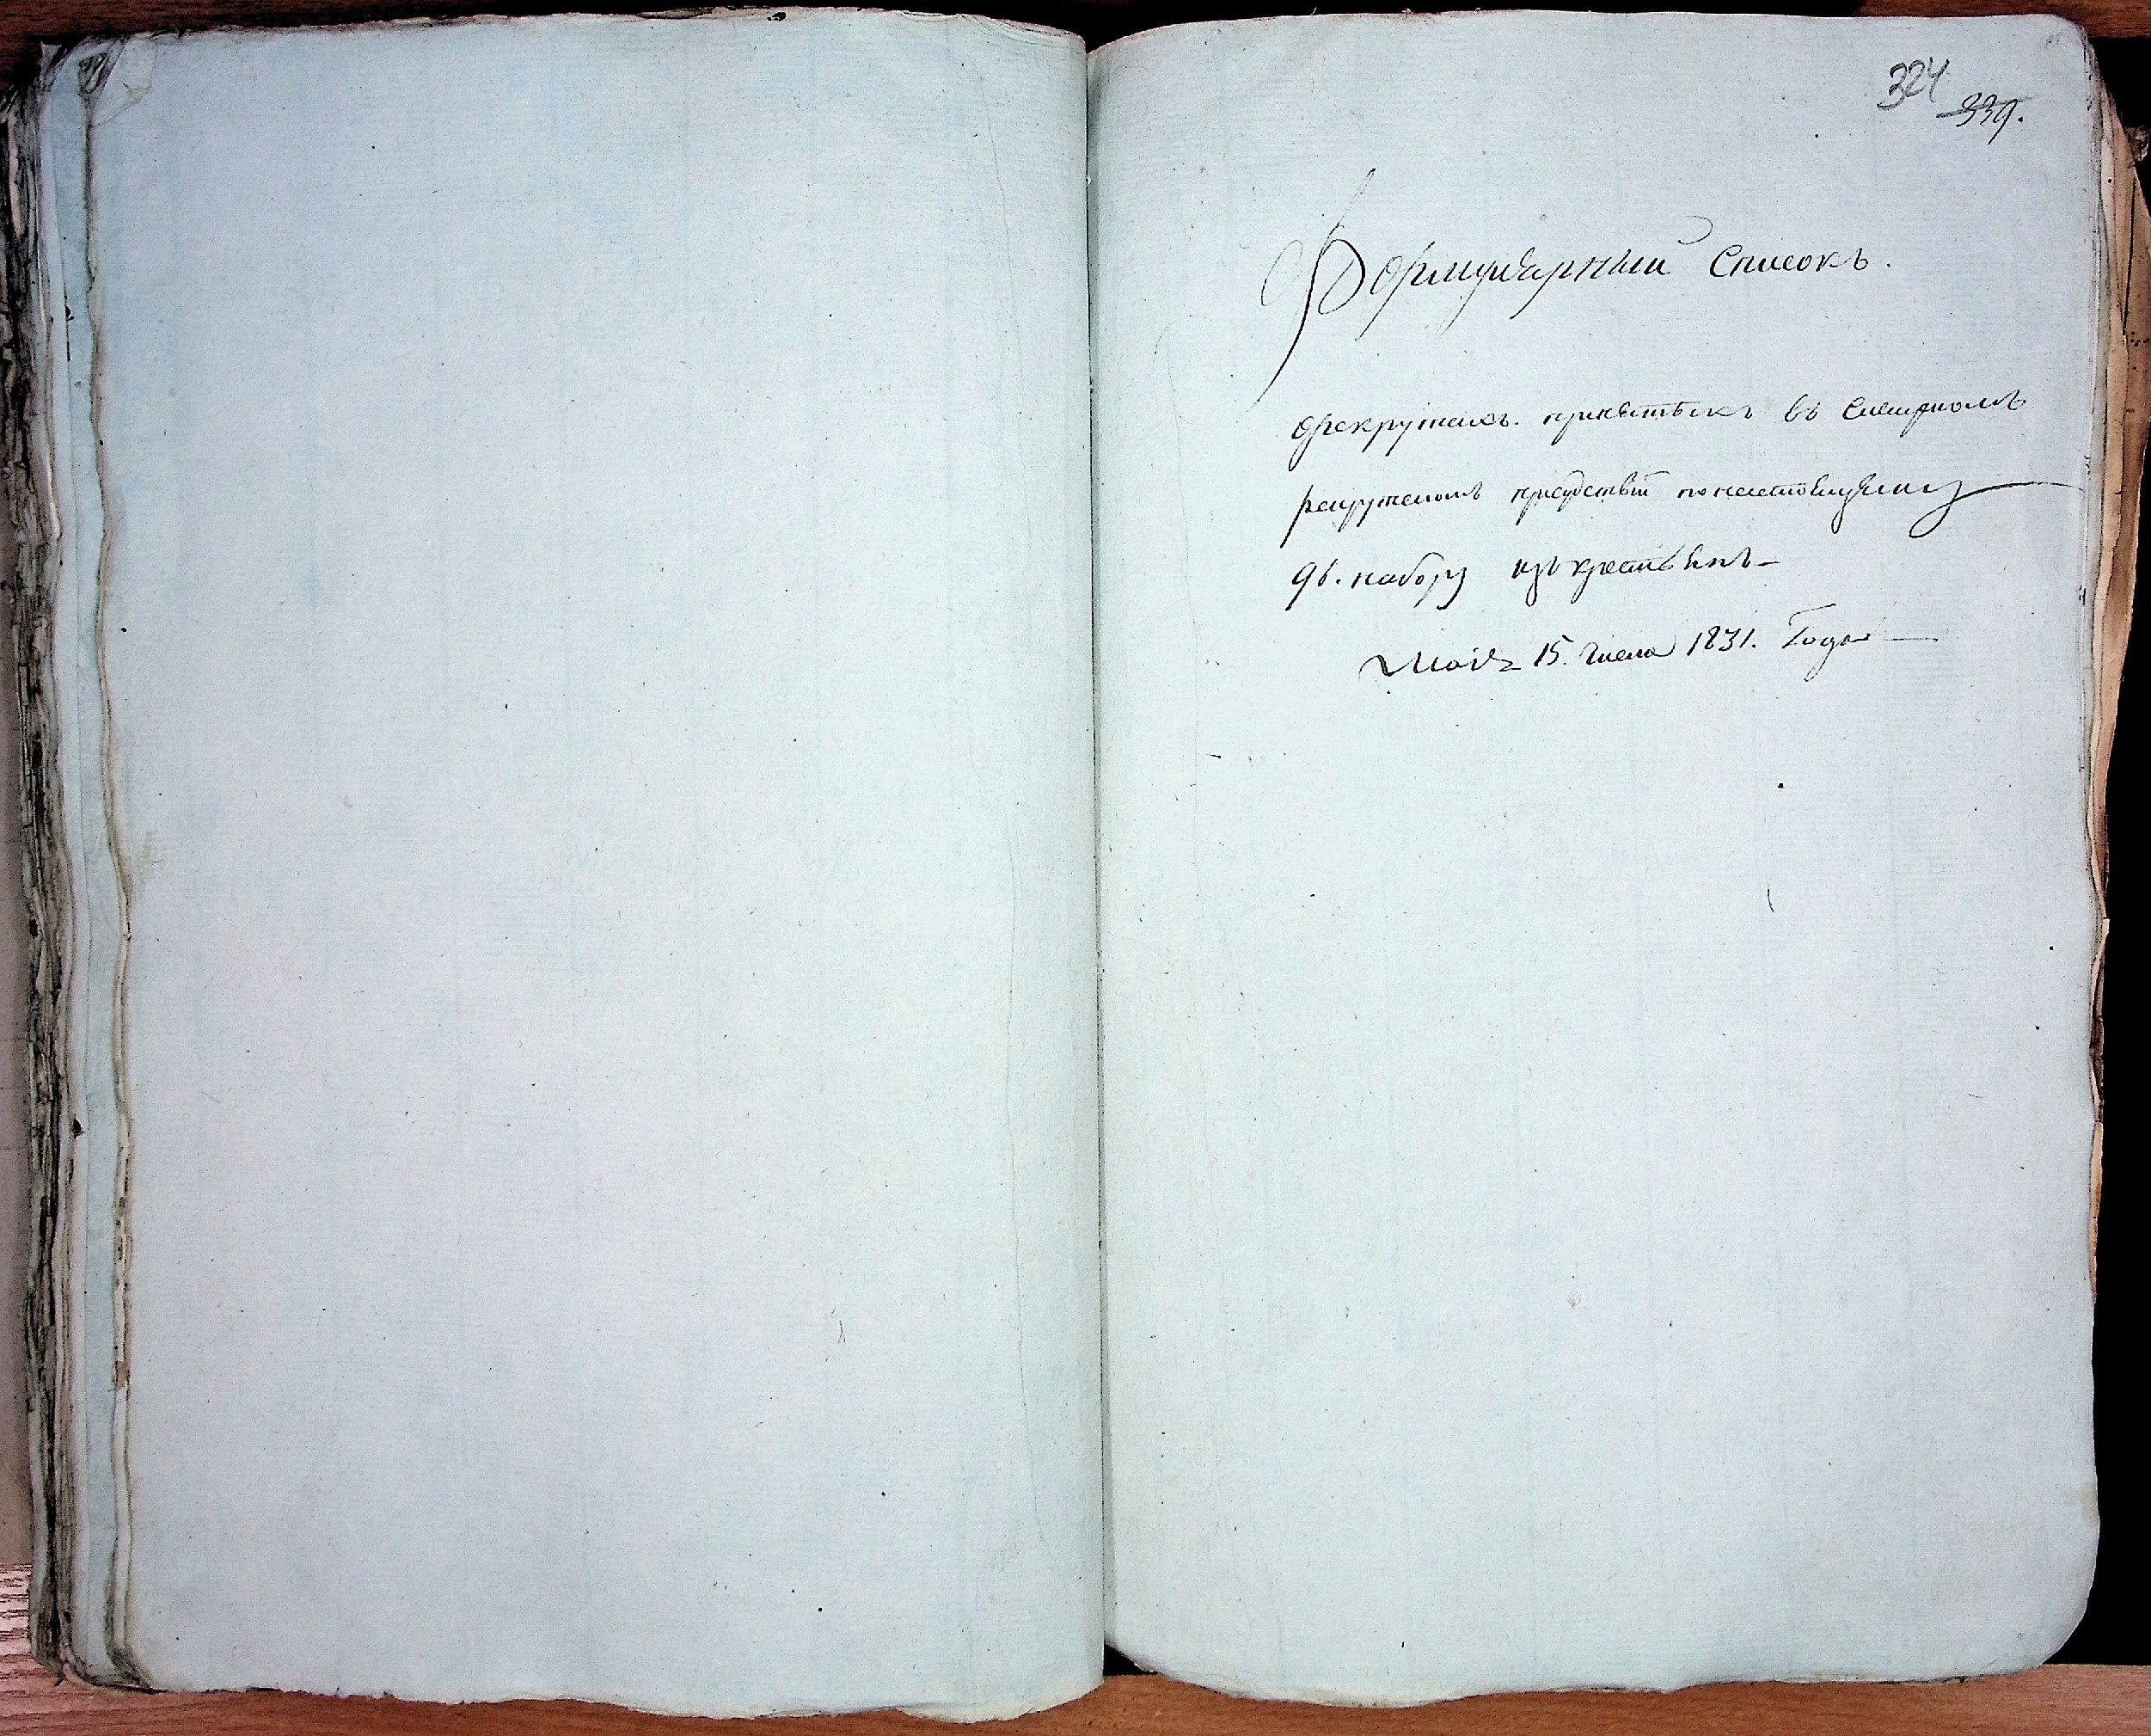 324
339.
Формулярный Списокъ.
орекрутахъ. принятыхъ въ
рекруцкомъ присудствіи понастоящему
96. набору изъ крестьянъ
Маія 15. числа 1831. Года